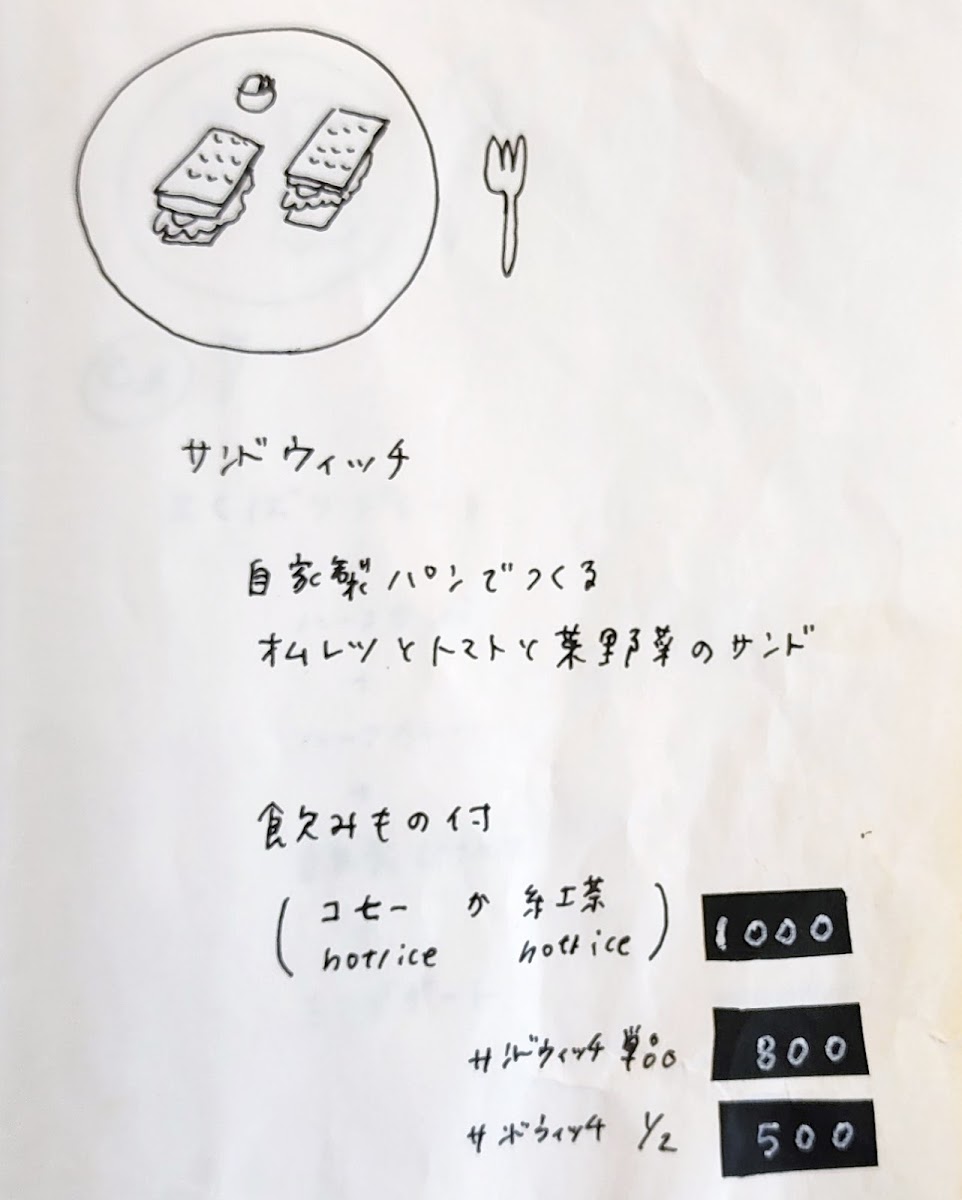 サンドウィッチ
自家製パンでつくる
オムレツとトマトと葉野菜のサンド
飲みもの付
(コーヒー か 紅茶) 1000
hot/ice hot/ice
サンドウィッチ単品 800
サンドウィッチ 1/2 500